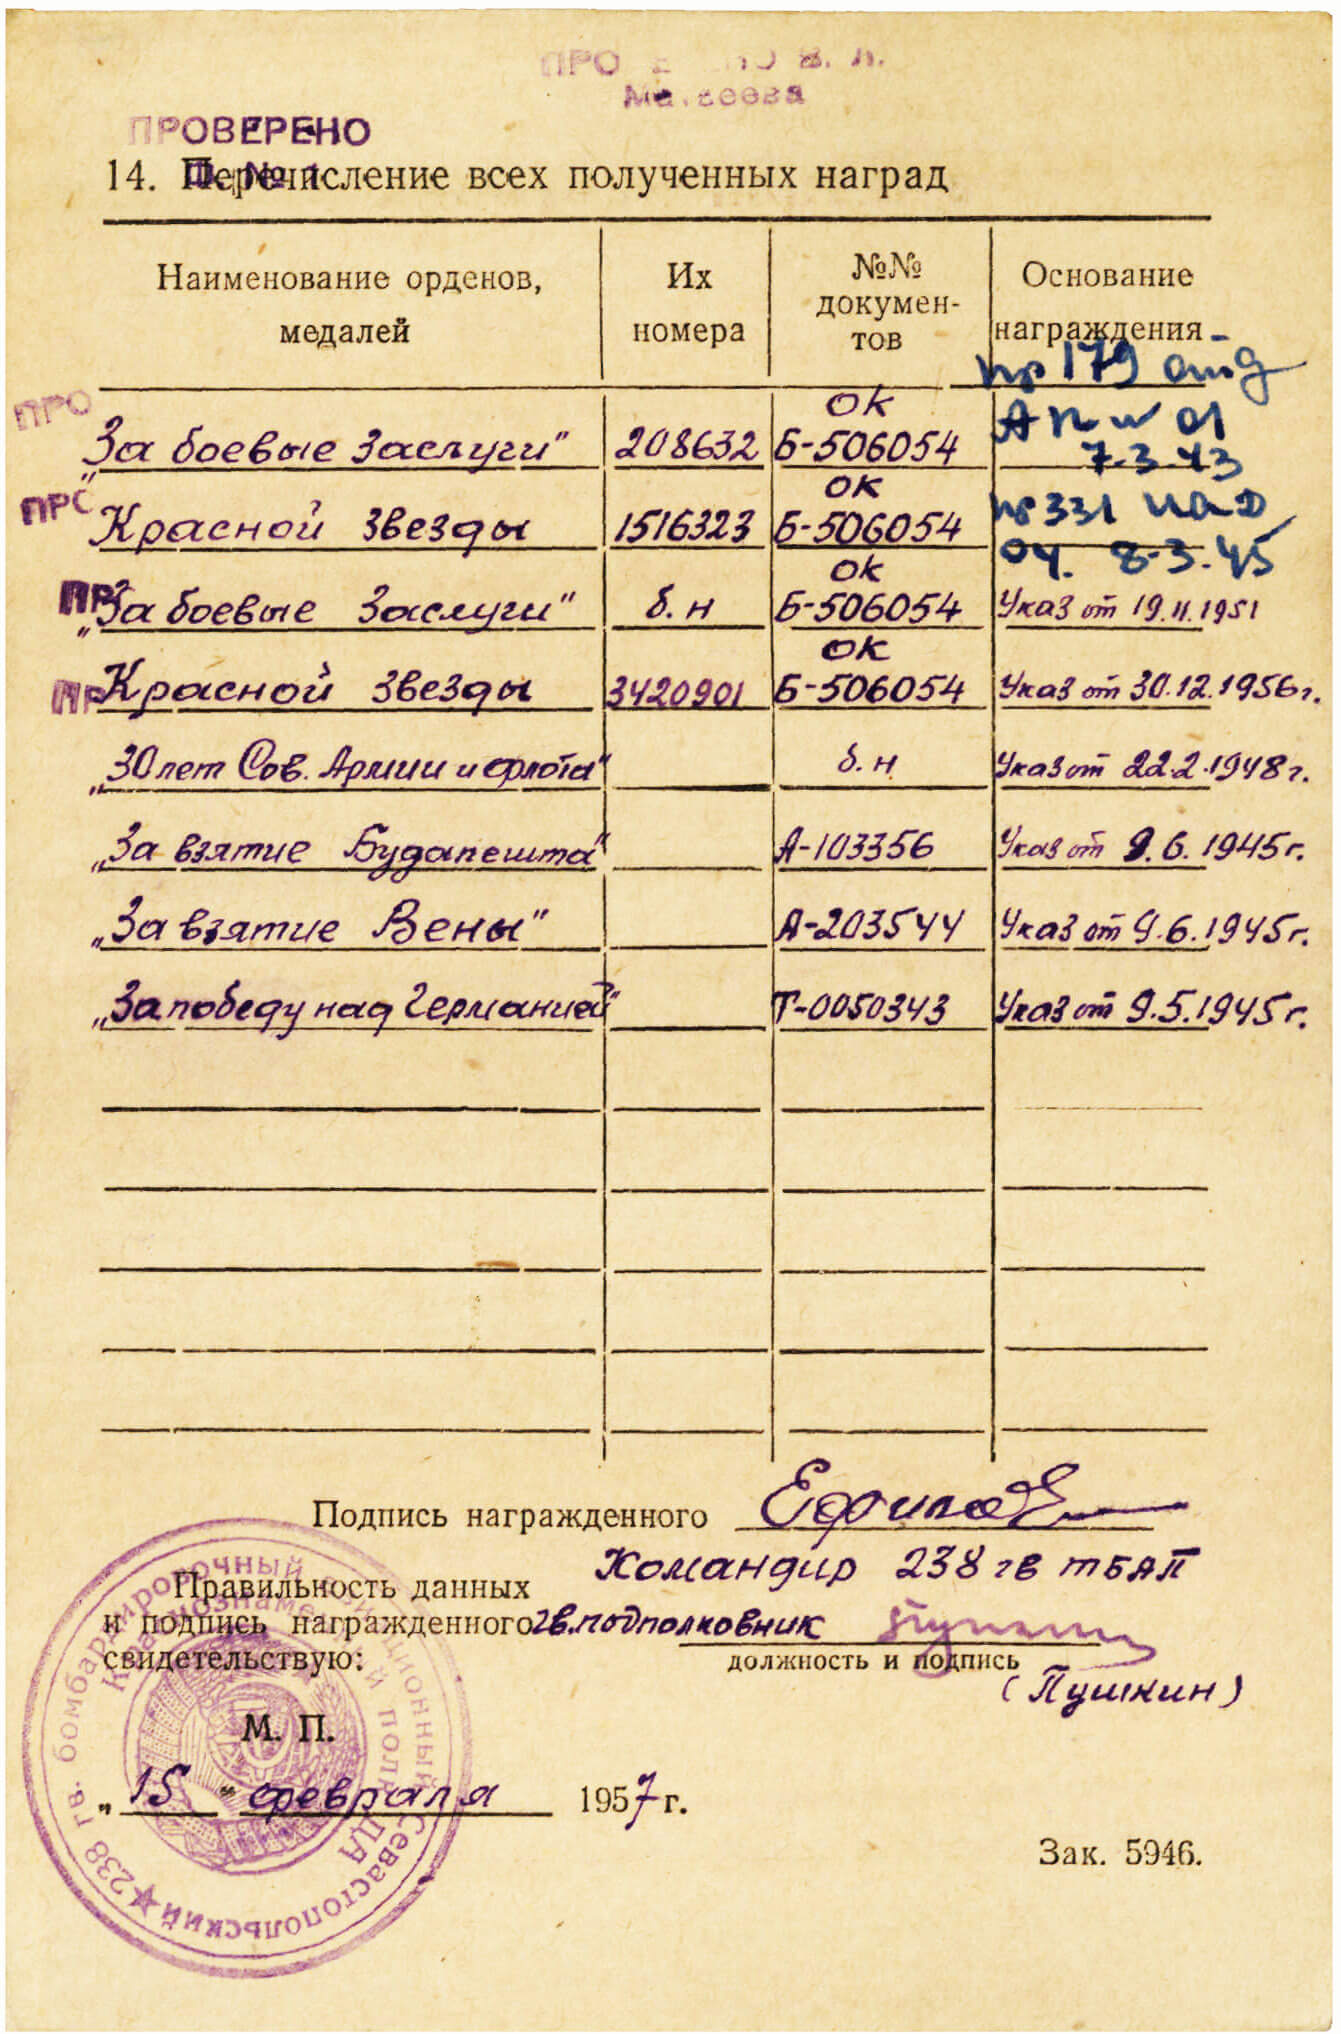 В. Л.
Матвеева
ПРОВЕРЕНО
14. Перечисление всех полученных наград
Наименование орденов, медалей
Их номера
№№ докумен-
тов
Основание награждения
пр 179
ПРО
„За боевые заслуги" 208632 ОК Б-506054 7.3.43
ПРО
Красной звезды 1516323 ОК Б-506054 пр 331 8.3.45
ПР
„За боевые заслуги" б.н ОК Б-506054 Указ от 19.11.1951
ПР
Красной звезды 3420901 ОК Б-506054 Указ от 30.12.1956г.
„30 лет Сов. Армии и флота" б.н Указ от 22.2.1948г.
„За взятие Будапешта" А-103356 Указ от 9.6.1945г.
„За взятие Вены" А-203544 Указ от 9.6.1945г.
„За победу над Германией" Т-0050343 Указ от 9.5.1945г.
Подпись награжденного
Командир 238 гв тбап
Правильность данных
и подпись награжденного гв.подполковник
свидетельствую:
должность и подпись
(Пушкин)
М. П.
„15" февраля 1957г.
Зак. 5946.
238 гв. бомбардировочный авиационный Севастопольский
Краснознаменный полк ДА